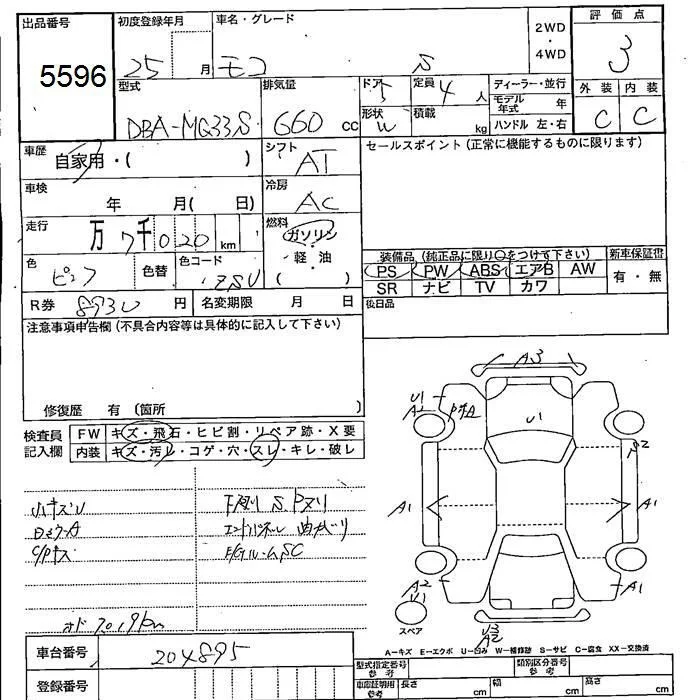 出品番号
5596
初度登録年月
25 月
車名・グレード
モコ S
2WD
・
4WD
評価点
3
外装 内装
C C
型式
DBA-MG33S
排気量
660 cc
ドア
5
定員 4 人
形状
W
積載 kg
ディーラー・並行
モデル年式 年
ハンドル 左・右
車歴
自家用・( )
シフト
AT
車検
年 月( 日)
冷房
AC
走行
万 7千020 km
燃料
ガソリン
・
軽油
( )
色
ピンク
色替
色コード
ZSU
R券
8930 円
名変期限 月 日
セールスポイント(正常に機能するものに限ります)
装備品(純正品に限り○をつけて下さい)
PS PW ABS エアB AW
SR ナビ TV カワ
新車保証書
有・無
後日品
注意事項申告欄(不具合内容等は具体的に記入して下さい)
修復歴 有 (箇所 )
検査員
記入欄
FW キズ・飛石・ヒビ割・リペア跡・X要
内装 キズ・汚レ・コゲ・穴・スレ・キレ・破レ
小キズU
下廻り Sアリ
オド 7019km
A3
U1
U1
A1
A1
A1
A2
U1
A1
U3
A2
スペア
A-キズ E-エクボ U-凹み W-補修跡 S-サビ C-腐食 XX-交換済
車台番号
204895
登録番号
型式指定番号
参考
類別区分番号
参考
車庫証明用
参考
長さ cm
幅 cm
高さ cm